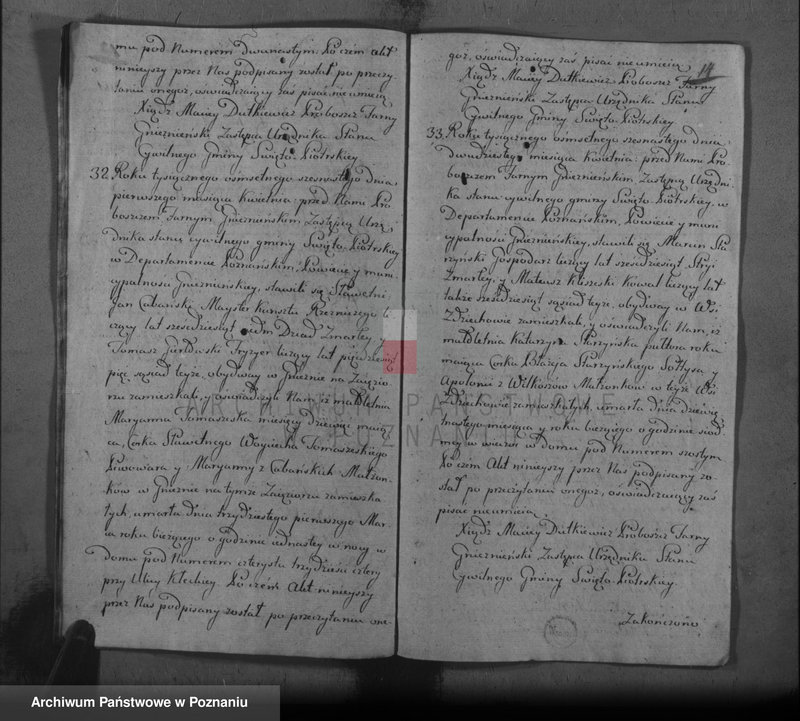 mu pod Numerem dwunastym. Po czem akt
ninieyszy przez Nas podpisany został po przeczy-
taniu onegoż, oswiadczaiący zaś pisać nieumieią
Xiądz Maciey Dutkiewicz Proboszcz Farny
Gnieznieński Zastępca Urzędnika Stanu
Cywilnego Gminy Swięto-Piotrskiey
32. Roku tysiącznego osmsetnego szesnastego dnia
pierwszego miesiąca Kwietnia: przed Nami Pro-
boszczem Farnym Gnieznieńskim Zastępcą Urzę-
dnika stanu cywilnego gminy Swięto-Piotrskiey
w Departamencie Poznańskim, Powiecie y muni-
cypalnosci Gnieznieńskiey, stawili się Sławetni
Jan Cabański Mayster kunsztu Rzezniczego li-
czący lat szescdziesiąt siedm Dziad Zmarłey y
Tomasz Fryzyer liczący lat pięcdziesiąt
pięć sąsiad teyże, obydway w Gnieznie na Zawzio-
rzu zamieszkali, y oswiadczyli Nam, iż małoletnia
Maryanna Tomaszeska miesięcy dziewięć maią-
ca, Corka Sławetnego Woyciecha Tomaszeskiego
Piwowara y Maryanny z Cabańskich Małżon-
ków w Gnieznie na tymże Zawziorzu zamieszka-
łych, umarła dnia trzydziestego pierwszego Mar-
ca roku bieżącego o godzinie iednastey w nocy w
domu pod Numerem czterysta trzydzieści cztery
przy Ulicy Kleckiey. Po czém Akt ninieyszy
przez Nas podpisany został po przeczytaniu one-
14
goż, oświadczaiący zaś pisać nieumieią
Xiądz Maciey Dutkiewicz Proboszcz Farny
Gnieznieński Zastępca Urzędnika Stanu
Cywilnego Gminy Swięto-Piotrskiey
33. Roku tysiącznego osmsetnego szesnastego dnia
dwudziestego miesiąca kwietnia: przed Nami Pro-
boszczem Farnym Gnieznieńskim Zastępcą Urzędni-
ka stanu cywilnego gminy Swięto-Piotrskiey w
Departamencie Poznańskim, Powiecie y muni-
cypalnosci Gnieznieńskiey, stawili się Marcin Sta-
rzyński Gospodarz liczący lat szescdziesiąt, Stryi
Zmarłey, y Mateusz Kowal liczący lat
także szescdziesiąt sąsiad teyże, obydway w Wsi
Zdziechowie zamieszkali, y oswiadczyli Nam, iż
małoletnia Katarzyna Starzyńska półtora roku
maiąca Corka Błażeja Starzyńskiego Sołtysa y
Apolonii z Wilkoszów Małżonków w teyże Wsi
Zdziechowie zamieszkałych, umarła dnia dziewię-
tnastego miesiąca y roku bieżącego o godzinie siod-
mey w wieczor w domu pod Numerem szostym
Po czem Akt ninieyszy przez Nas podpisany zo-
stał po przeczytaniu onegoż, oswiadczaiący zaś
pisac nieumieią
Xiądz Maciey Dutkiewicz Proboszcz Farny
Gnieznieński Zastępca Urzędnika Stanu
Cywilnego Gminy Swięto-Piotrskiey
Zakończono
ARCHIWUM PAŃSTWOWE
W POZNANIU
Archiwum Państwowe w Poznaniu